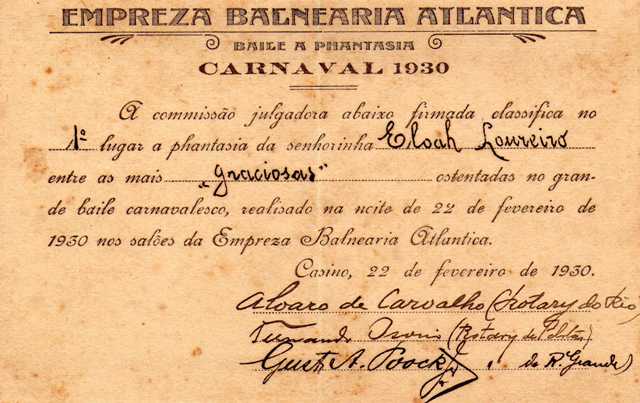 EMPREZA BALNEARIA ATLANTICA
BAILE A PHANTASIA
CARNAVAL 1930
A commissão julgadora abaixo firmada classifica no
1º lugar a phantasia da senhorinha Eloah Loureiro
entre as mais "graciosas" ostentadas no gran-
de baile carnavalesco, realisado na noite de 22 de fevereiro de
1930 nos salões da Empreza Balnearia Atlantica.
Casino, 22 de fevereiro de 1930.
Alvaro de Carvalho (Rotary do Rio
Fernando (Rotary de
Gust. A. Poock do R. Grande)